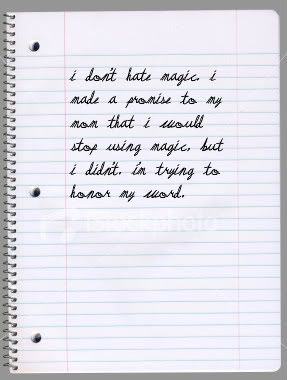 i don't hate magic. i
made a promise to my
mom that i would
stop using magic. but
i didn't. i'm trying to
honor my word.